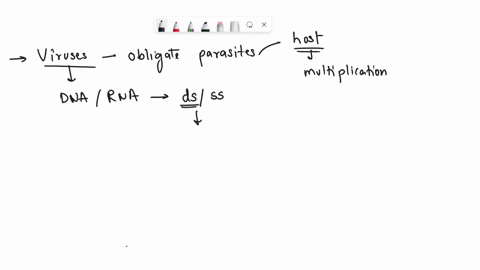 → Viruses – obligate parasites / host
↓ ↓ multiplication
DNA / RNA → ds / ss
↓